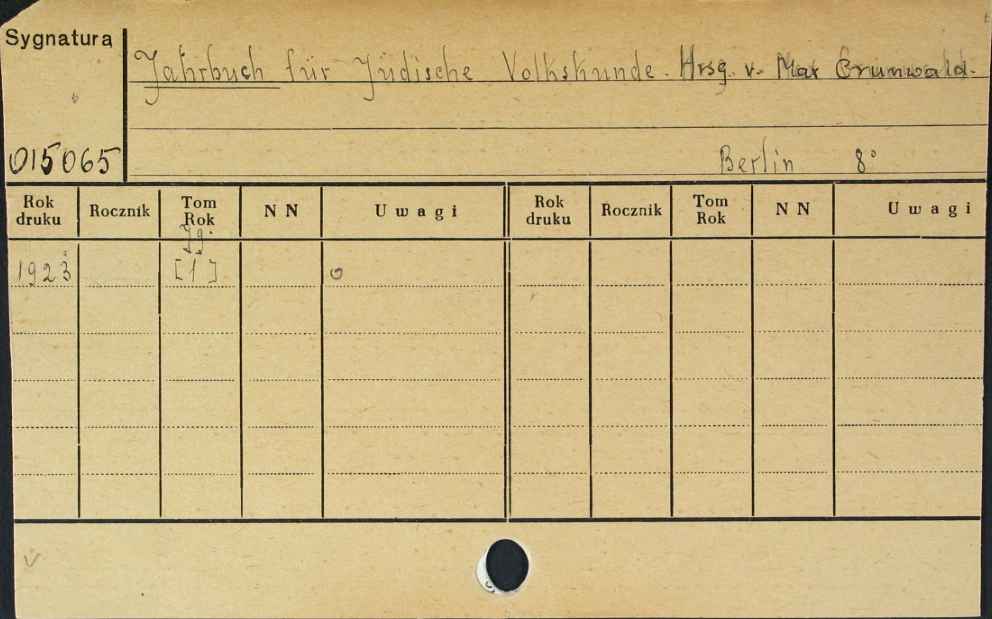 Sygnatura
Jahrbuch für Jüdische Volkskunde. Hrsg. v. Max Grunwald.
015065
Berlin 8°
Rok druku Rocznik Tom Rok NN Uwagi Rok druku Rocznik Tom Rok NN Uwagi
Jg.
1923 [1]